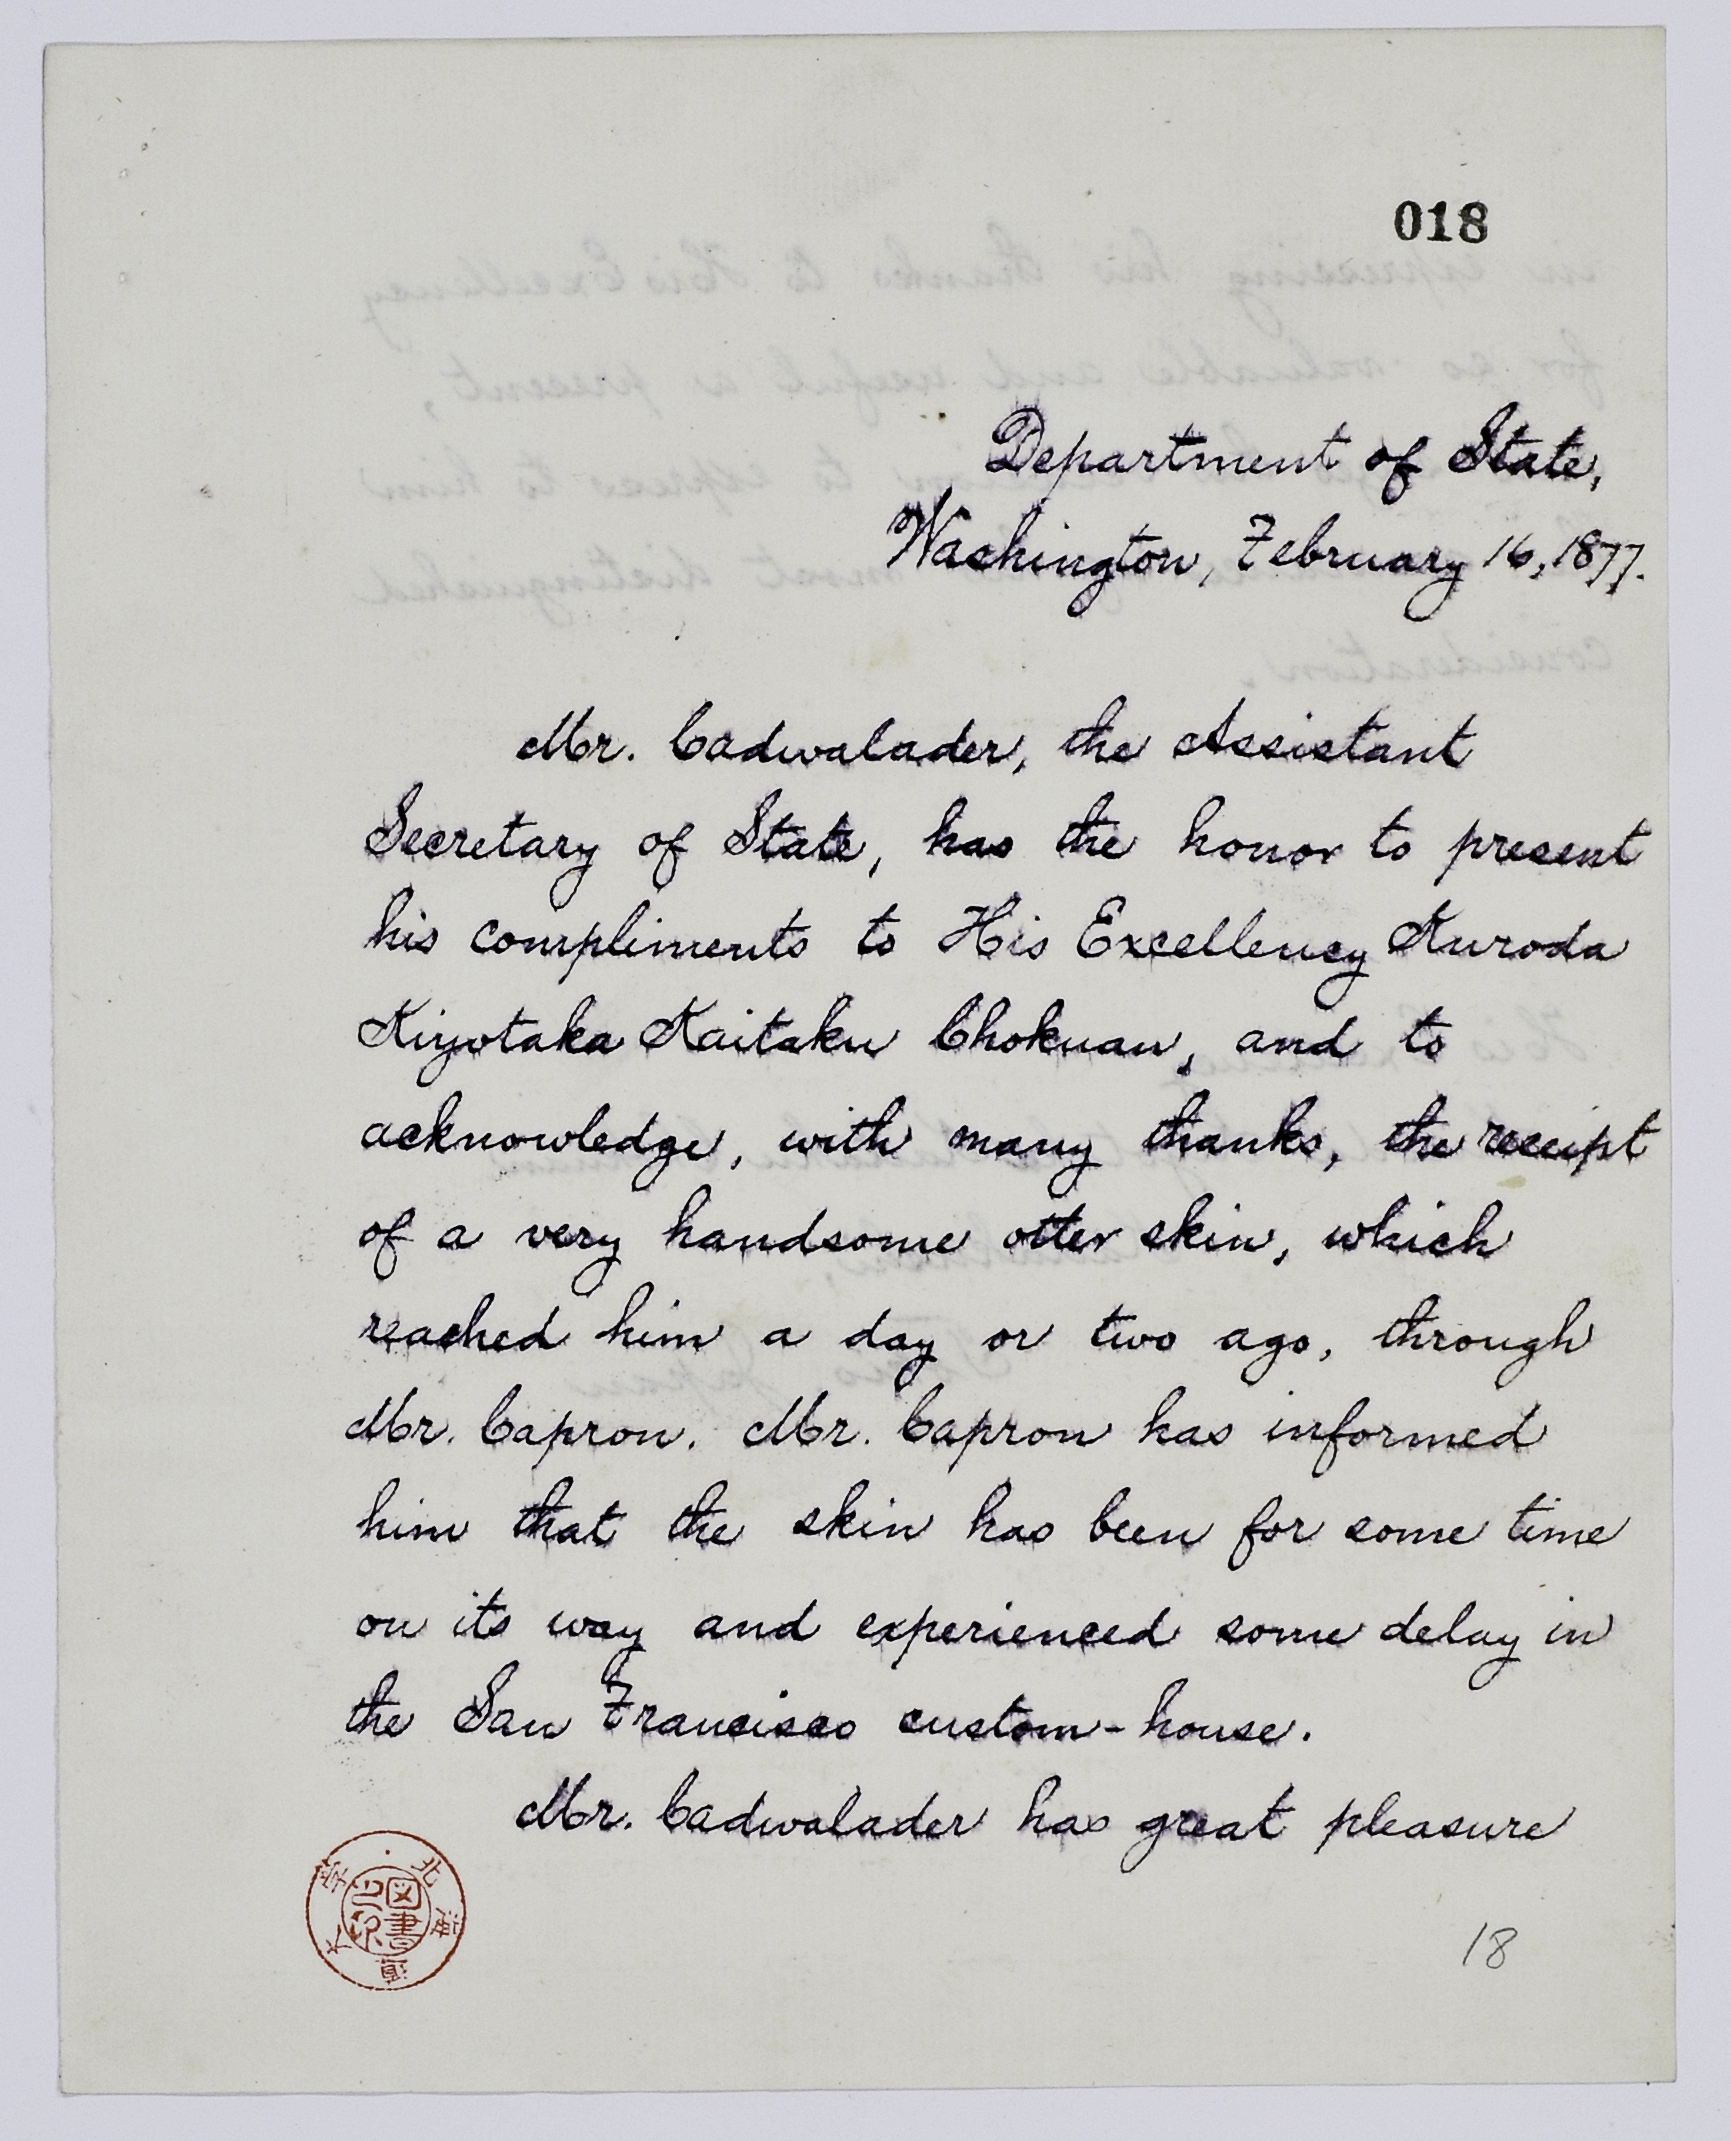 018
Department of State,
Washington, February 16, 1877.
Mr. Cadwalader, the Assistant
Secretary of State, has the honor to present
his compliments to His Excellency Kuroda
Kiyotaka Kaitaku Chokuan, and to
acknowledge, with many thanks, the receipt
of a very handsome otter skin, which
reached him a day or two ago, through
Mr. Capron. Mr. Capron has informed
him that the skin has been for some time
on its way and experienced some delay in
the San Francisco custom-house.
Mr. Cadwalader has great pleasure
18